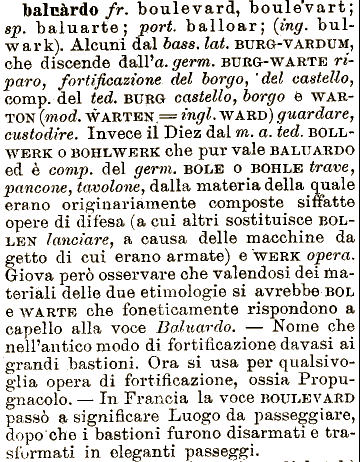 baluàrdo fr. boulevard, boulevart;
sp. baluarte; port. balloar; (ing. bul-
wark). Alcuni dal bass. lat. BURG-VARDUM,
che discende dall'a. germ. BURG-WARTE ri-
paro, fortificazione del borgo, del castello,
comp. del ted. BURG castello, borgo e WAR-
TON (mod. WARTEN = ingl. WARD) guardare,
custodire. Invece il Diez dal m. a. ted. BOLL-
WERK o BOHLWERK che pur vale BALUARDO
ed è comp. del germ. BOLE o BOHLE trave,
pancone, tavolone, dalla materia della quale
erano originariamente composte siffatte
opere di difesa (a cui altri sostituisce BOL-
LEN lanciare, a causa delle macchine da
getto di cui erano armate) e WERK opera.
Giova però osservare che valendosi dei ma-
teriali delle due etimologie si avrebbe BOL
e WARTE che foneticamente rispondono a
capello alla voce Baluardo. — Nome che
nell'antico modo di fortificazione davasi ai
grandi bastioni. Ora si usa per qualsivo-
glia opera di fortificazione, ossia Propu-
gnacolo. — In Francia la voce BOULEVARD
passò a significare Luogo da passeggiare,
dopo che i bastioni furono disarmati e tra-
sformati in eleganti passeggi.